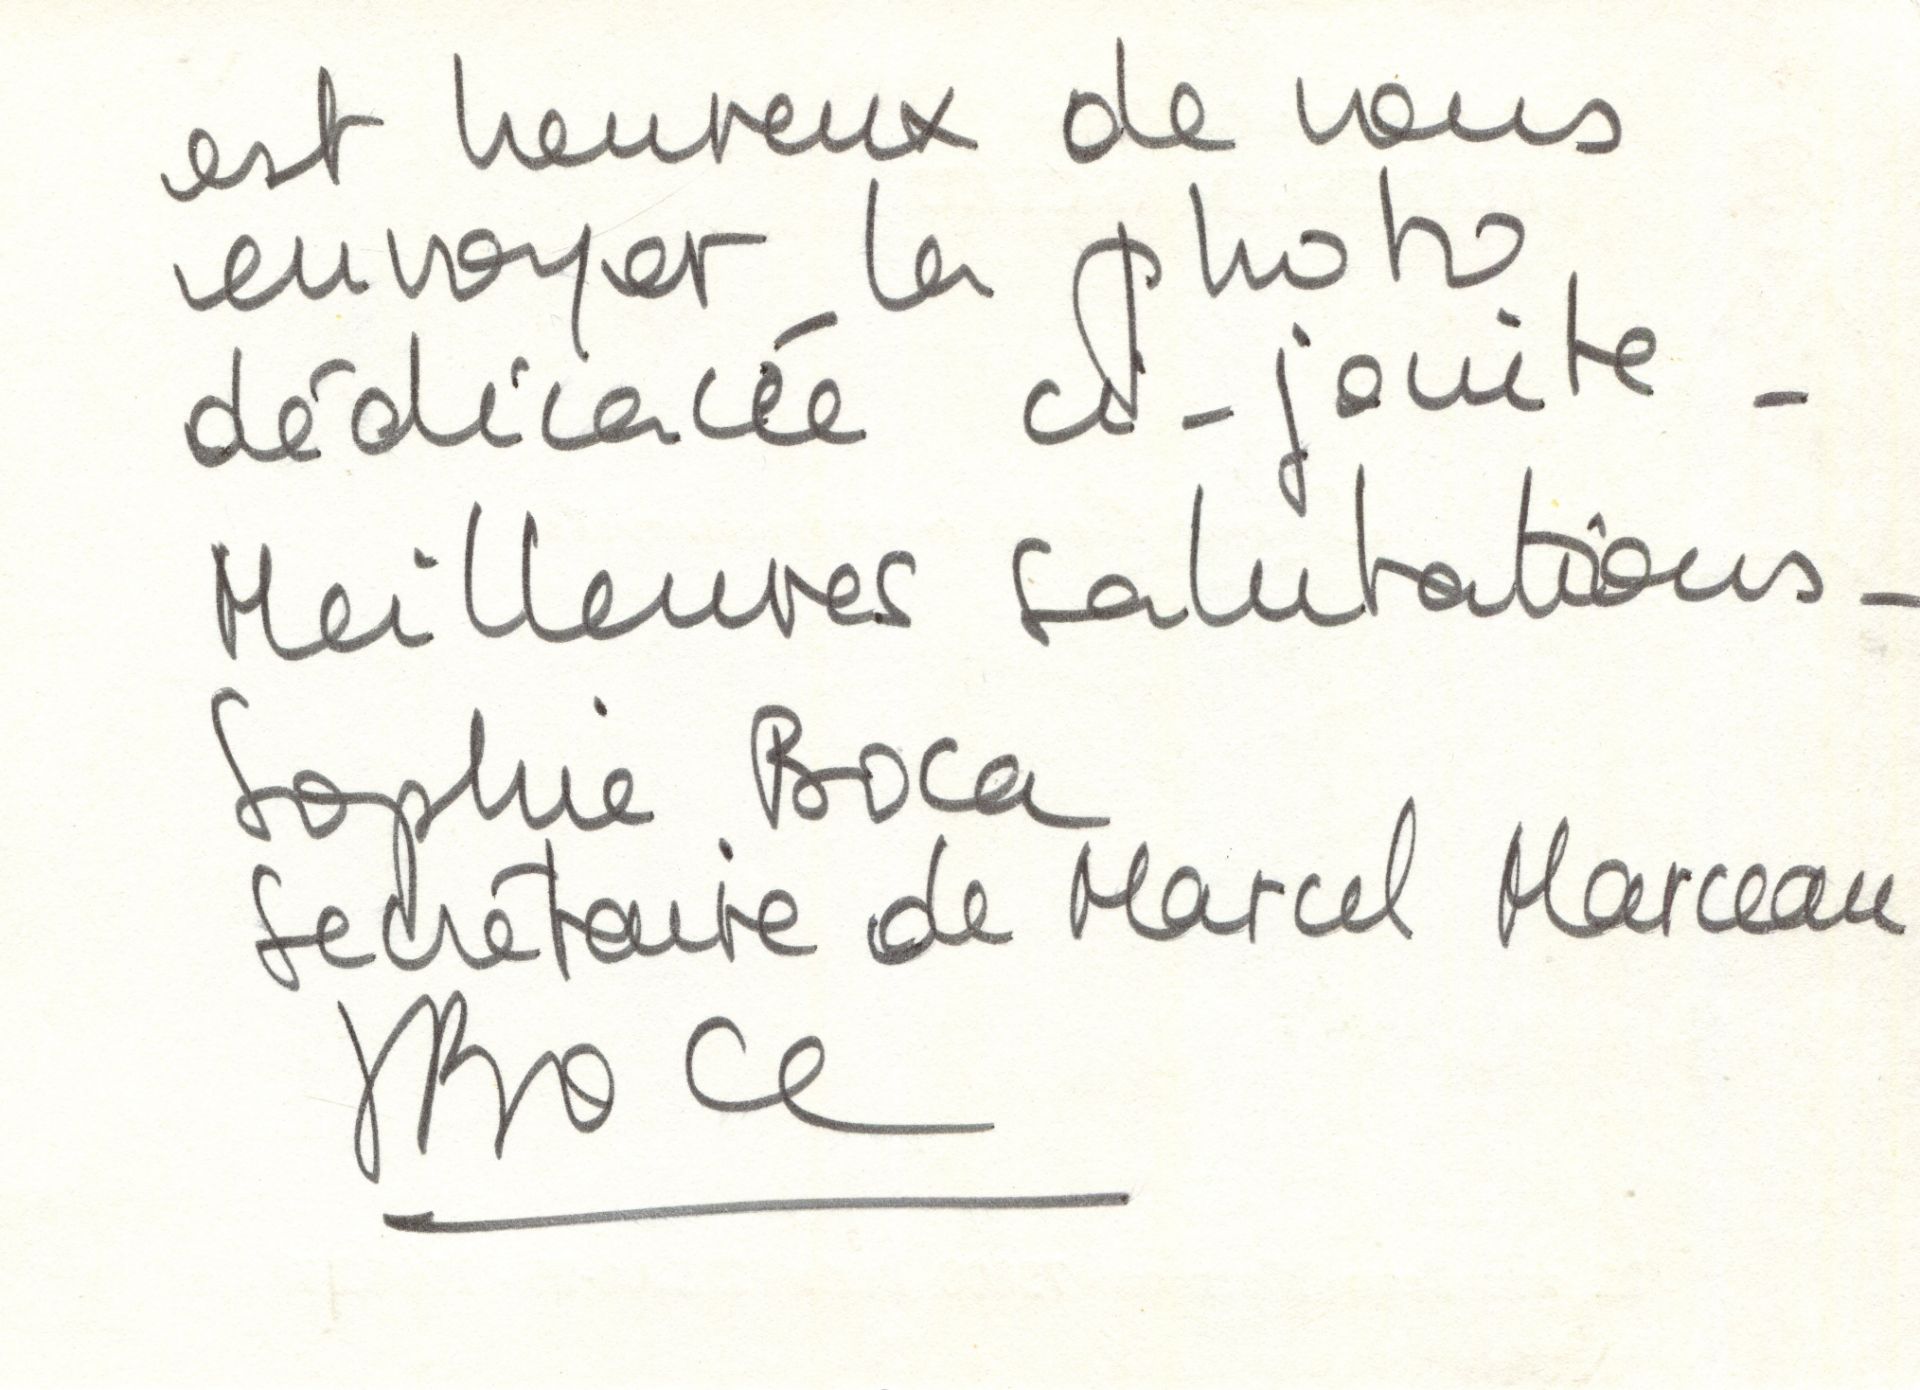 est heureux de vous
envoyer la photo
dédicacée ci-jointe -
Meilleures salutations -
Sophie Boca
Secrétaire de Marcel Marceau
SBoca